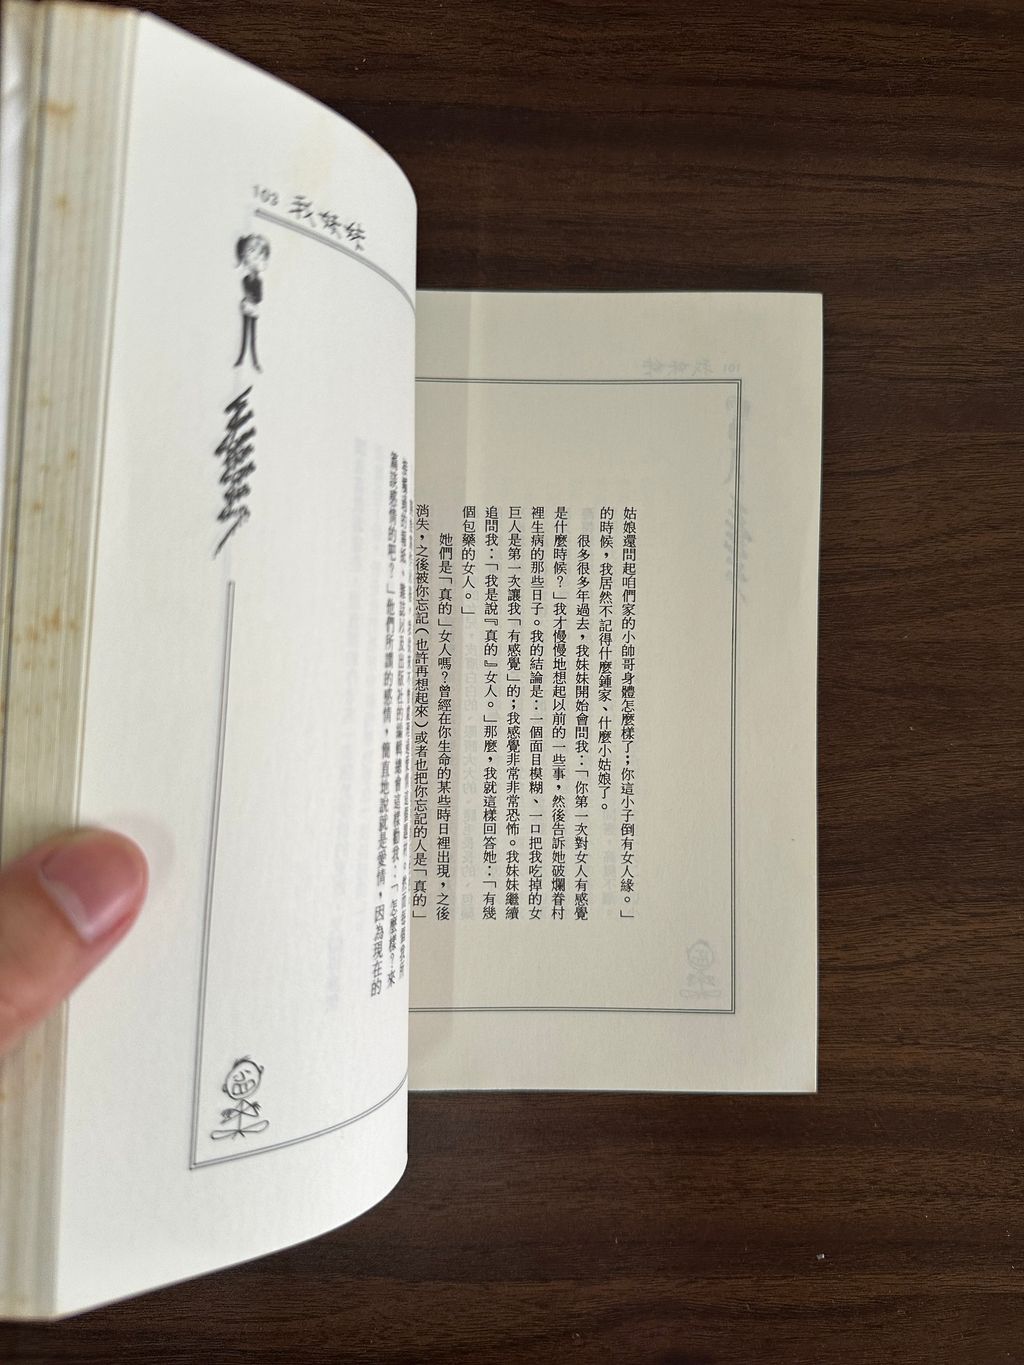 姑娘還問起咱們家的小帥哥身體怎麼樣了；你這小子倒有女人緣。」
的時候，我居然不記得什麼鍾家、什麼小姑娘了。
很多很多年過去，我妹妹開始會問我：「你第一次對女人有感覺
是什麼時候？」我才慢慢地想起以前的一些事，然後告訴她破爛眷村
裡生病的那些日子。我的結論是：一個面目模糊、一口把我吃掉的女
巨人是第一次讓我「有感覺」的；我感覺非常非常恐怖。我妹妹繼續
追問我：「我是說『真的』女人。」那麼，我就這樣回答她：「有幾
個包藥的女人。」
她們是「真的」女人嗎？曾經在你生命的某些時日裡出現，之後
消失，之後被你忘記（也許再想起來）或者也把你忘記的人是「真的」
103 我妹妹
總會這樣勸我：「怎麼樣？來
篇談感情的吧？」他們所謂的感情，簡直地說就是愛情，因為現在的